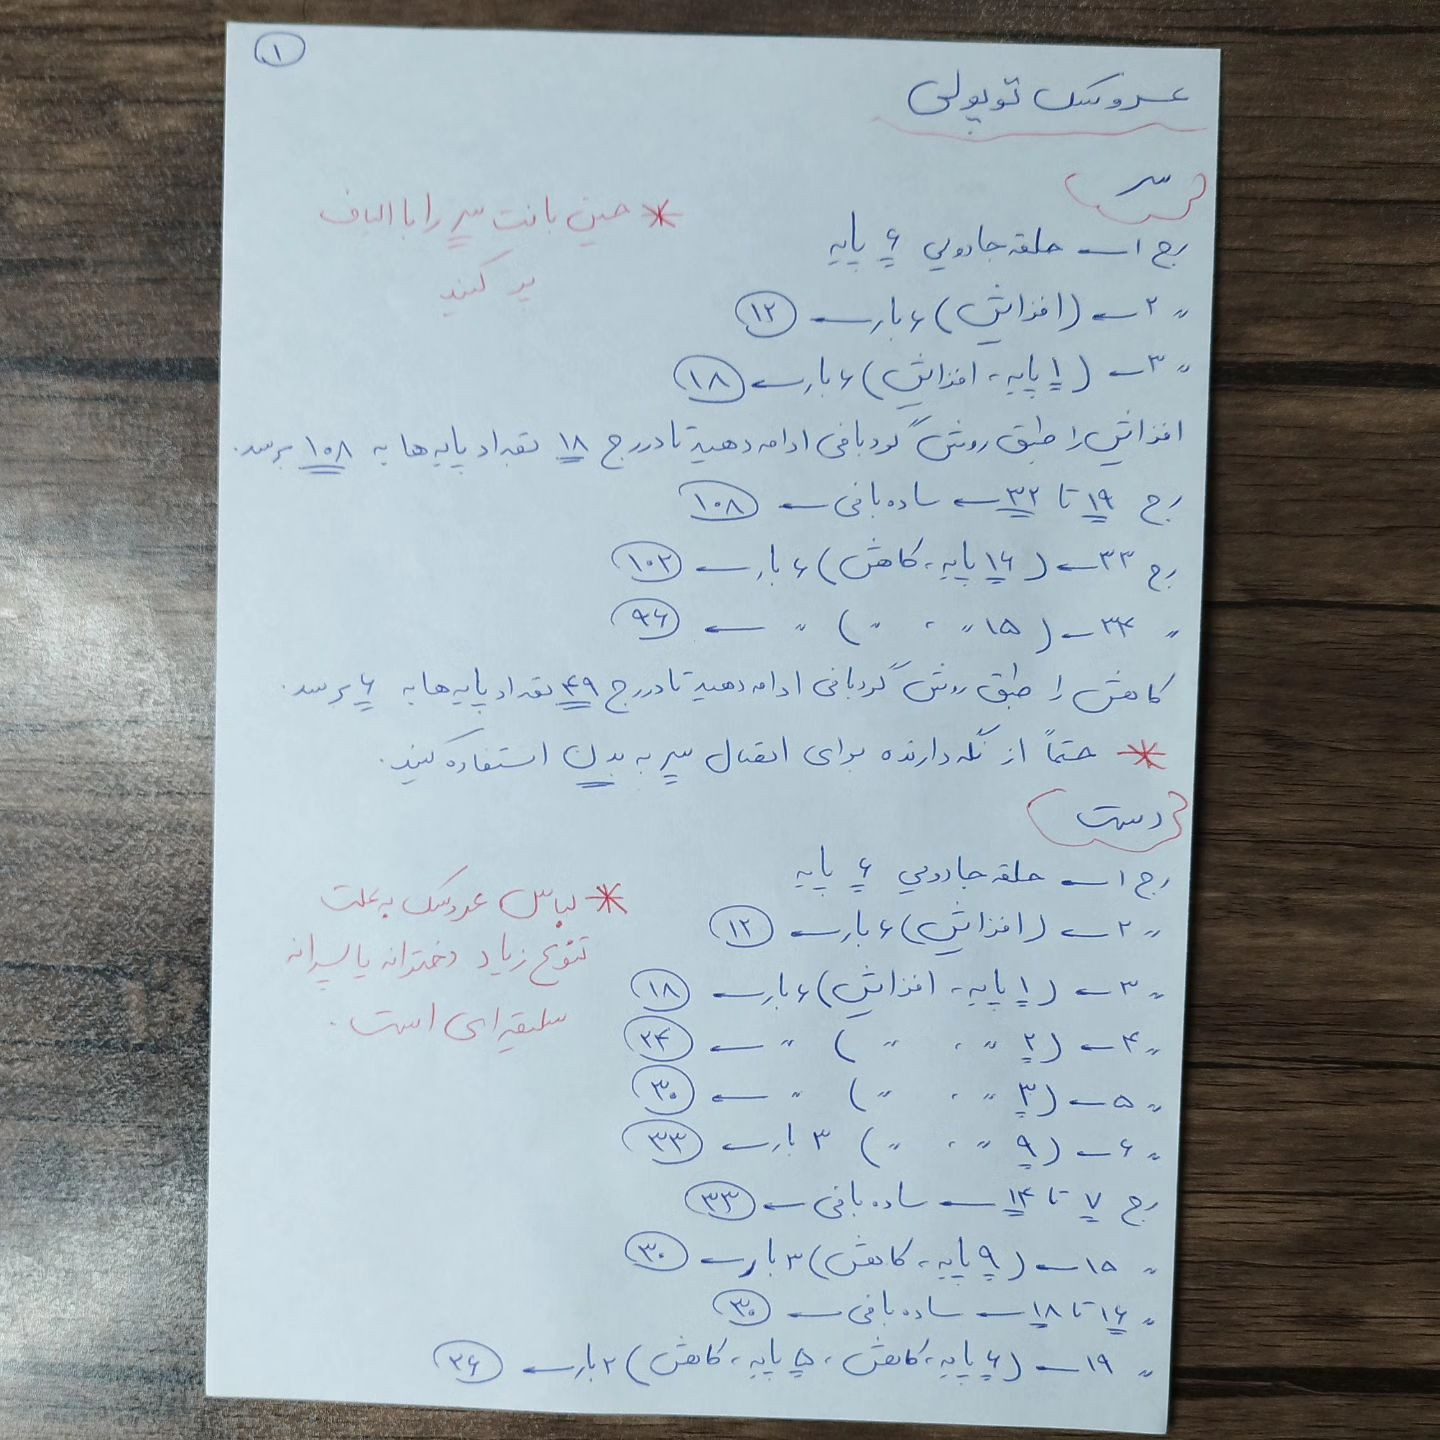 ۱
عروسک توپولی
سر
* حین بافت سر را با الیاف
پر کنید
رج ۱← حلقه جادویی ۶ پایه
〃 ۲← (افزایش) ۶ بار← ۱۲
〃 ۳← (۱ پایه، افزایش) ۶ بار← ۱۸
افزایش را طبق روش گردبافی ادامه دهید تا در رج ۱۸ تعداد پایه‌ها به ۱۰۸ برسد.
رج ۱۹ تا ۳۲← ساده بافی← ۱۰۸
رج ۳۳← (۱۶ پایه، کاهش) ۶ بار← ۱۰۲
〃 ۳۴← (۱۵ 〃 ، 〃) 〃 ← ۹۶
کاهش را طبق روش گردبافی ادامه دهید تا در رج ۴۹ تعداد پایه‌ها به ۶ برسد.
* حتماً از نگه دارنده برای اتصال سر به بدن استفاده کنید.
دست
رج ۱← حلقه جادویی ۶ پایه
〃 ۲← (افزایش) ۶ بار← ۱۲
〃 ۳← (۱ پایه، افزایش) ۶ بار← ۱۸
〃 ۴← (۲ 〃 ، 〃) 〃 ← ۲۴
〃 ۵← (۳ 〃 ، 〃) 〃 ← ۳۰
〃 ۶← (۹ 〃 ، 〃) ۳ بار← ۳۳
* لباس عروسک به علت
تنوع زیاد دخترانه یا پسرانه
سلیقه‌ای است.
رج ۷ تا ۱۴← ساده بافی← ۳۳
〃 ۱۵← (۹ پایه، کاهش) ۳ بار← ۳۰
〃 ۱۶ تا ۱۸← ساده بافی← ۳۰
〃 ۱۹← (۶ پایه، کاهش، ۵ پایه، کاهش) ۲ بار← ۲۶